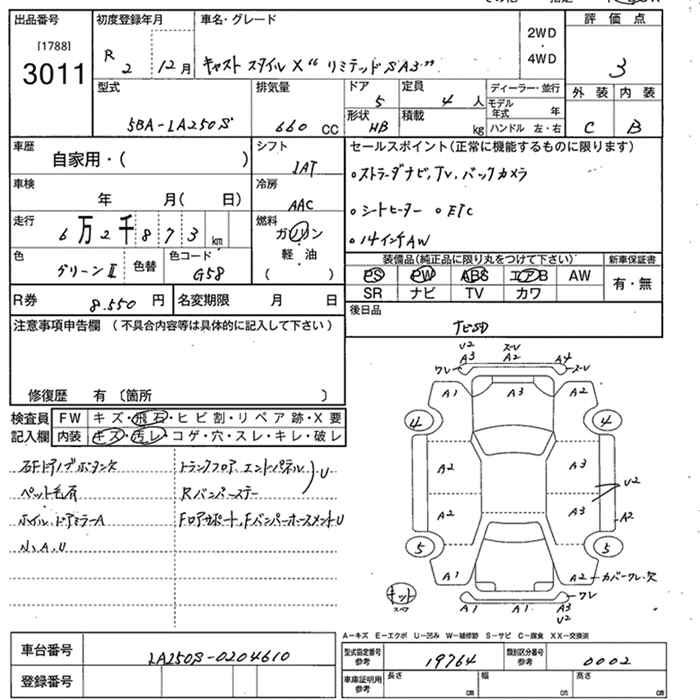 出品番号 初度登録年月 車名・グレード 評価点
[1788]
3011 R 2 12月 キャスト スタイル X "リミテッドSA3" 2WD・4WD 3
型式 排気量 ドア 5 定員 4 人 ディーラー・並行 外装 内装
5BA-LA250S 660 CC 形状 HB 積載 kg モデル年式 年 ハンドル 左・右 C B
車歴 自家用・( ) シフト セールスポイント(正常に機能するものに限ります)
IAT
車検 年 月( 日) 冷房 AAC
。ストラーダナビ,TV,バックカメラ
。シートヒーター 。ETC
。14インチAW
走行 6万2千873km 燃料 ガソリン 軽・油 ( )
装備品(純正品に限り丸をつけて下さい) 新車保証書
色 グリーンⅡ 色替 色コード G58
PS PW ABS エアB AW 有・無
SR ナビ TV カワ
R券 8.550 円 名変期限 月 日
後日品
注意事項申告欄 (不具合内容等は具体的に記入して下さい)
修復歴 有(箇所 )
検査員 FW キズ・飛石・ヒビ割・リペア跡・X要
記入欄 内装 キズ・汚レ・コゲ・穴・スレ・キレ・破レ
トランクフロア エンドパネル U
ペット毛有 Rバンパーステー
ホイル,ドアミラーA
小,A,U
U2 スレ
ワレ A3 A2 A4 スレ
A1 A3 A2
4 4
A2 A3
U2
A2 A3 A2
5 5
A1 A1 A2 カバーワレ・欠
キット
A1 A1 A3 ワレ
U2
A-キズ E-エクボ U-凹み W-補修跡 S-サビ C-腐食 XX-交換済
車台番号 LA250S-0204610
型式指定番号 参考 19764 類別区分番号 参考 0002
登録番号
車庫証明用 参考 長さ cm 幅 cm 高さ cm